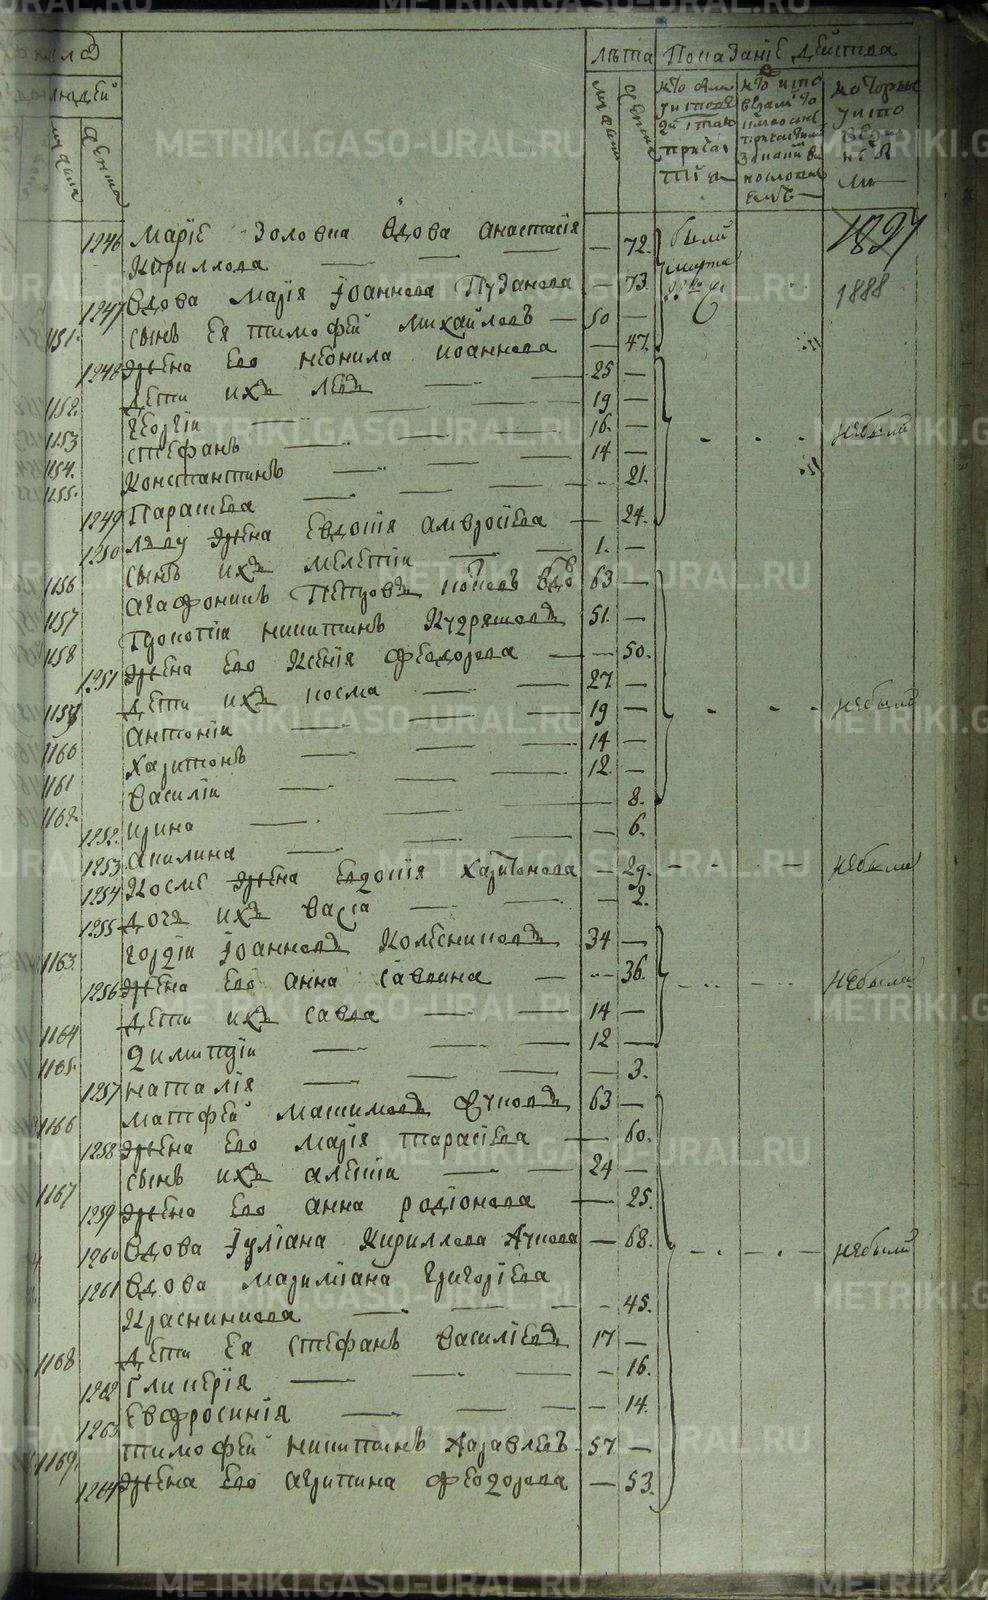 Лѣта
Показанiе действа
людей
1246 Марiе золовка вдова Анастасiя
Кириллова — 72. были
1247 вдова Марiя Iоаннова Пузанова — 73. 1888
1151. сынъ ея тимофей михайловъ — 50 —
1248 жена его неонила иоаннова — 47.
1152. дети ихъ левъ 25 —
1153 георгiи 19 —
1154. стефанъ 16. — небыли
1155. константинъ 14 —
1249 Параскева 21.
1250 льву жена Евдокiя амвросiева — 24.
1156 сынъ ихъ мелетiи 1. —
1157 агафоникъ Петровъ поповъ вдовъ 63 —
1158 Прокопiи никитинъ Кудряшовъ 51. —
1251 жена его Ксенiя феодорова — 50.
1159 дети ихъ косма 27 —
1160 антонiи 19 — небыли
1161 харитонъ 14 —
1162. василiи 12. —
1252. ирина 8.
1253 акилина — 6.
1254 Косме жена евдокiя харитонова — 29. небыли
1255 дочь ихъ васса — 2.
1163. гордiи Iоанновъ Колесниковъ 34 —
1256 жена его анна саввина — 36. небыли
1164 дети ихъ савва 14 —
1165. димитрiи 12 —
1257 наталiя — 3.
1166 матфей 63 —
1258 жена его марiя тарасiева — 60.
1167 сынъ ихъ алексiи 24 —
1259 жена его анна родiонова — 25.
1260 вдова Iулiана Кириллова — 68. небыли
1261 вдова маримiана григорiева
— 45.
1168 дети ея стефанъ василiевъ 17 —
1262 гликерiя — 16.
1263 евфросинiя — 14.
1169. тимофей никитинъ 57 —
1264 жена его агрипина феодорова — 53.
METRIKI.GASO-URAL.RU